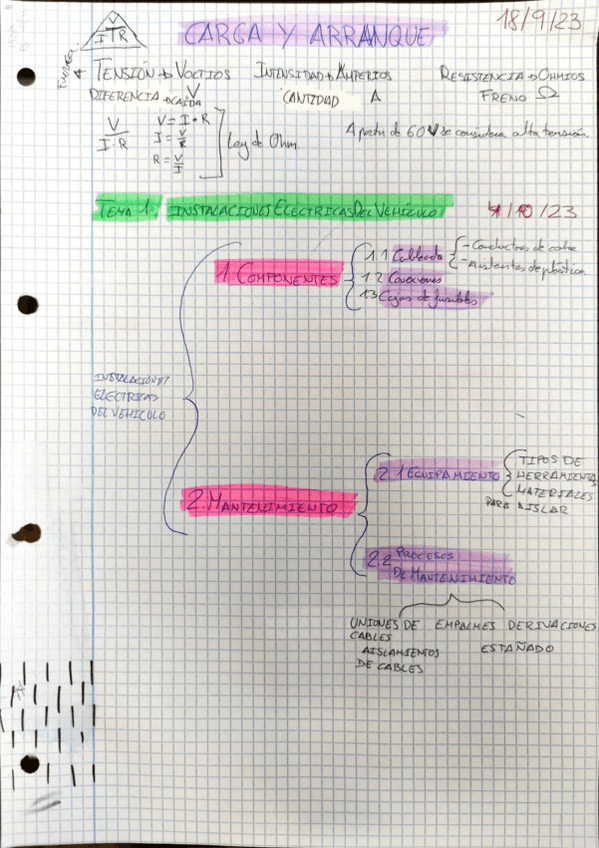 18/9/23
V
I T R
CARGA Y ARRANQUE
Fuerza
TENSIÓN → VOLTIOS INTENSIDAD → AMPERIOS RESISTENCIA → OHMIOS
DIFERENCIA → CAIDA V CANTIDAD A FRENO Ω
V/I·R V = I · R
I = V/R
R = V/I
Ley de Ohm.
A partir de 60 V se considera alta tensión.
TEMA 1: INSTALACIONES ELÉCTRICAS DEL VEHÍCULO 4/10/23
1. COMPONENTES
1.1 Cableado
- Conductores de cobre
- Aislantes de plástico.
1.2 Conexiones
1.3 Cajas de fusibles
INSTALACIONES
ELÉCTRICAS
DEL VEHÍCULO
2. MANTENIMIENTO
2.1 EQUIPAMIENTO
TIPOS DE
HERRAMIENTAS
MATERIALES
PARA AISLAR
2.2 PROCESOS
DE MANTENIMIENTO
UNIONES DE EMPALMES DERIVACIONES
CABLES
AISLAMIENTOS ESTAÑADO
DE CABLES